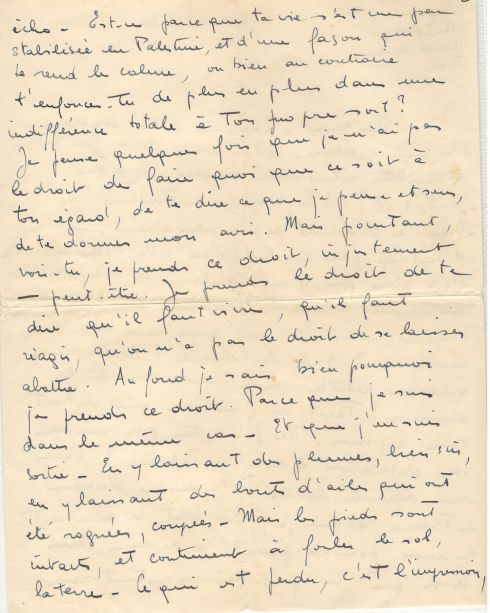 écho - Est-ce parce que ta vie s'est un peu
stabilisée en Palestine, et d'une façon qui
te rend le calme, ou bien au contraire
t'enfonces-tu de plus en plus dans une
indifférence totale à ton propre sort ?
Je pense quelques fois que je n'ai pas
le droit de faire quoi que ce soit à
ton égard, de te dire ce que je pense et sens,
de te donner mon avis. Mais pourtant,
vois-tu, je prends ce droit, injustement
- peut-être. Je prends le droit de te
dire qu'il faut vivre, qu'il faut
réagir, qu'on n'a pas le droit de se laisser
abattre. Au fond je sais bien pourquoi
je prends ce droit. Parce que je suis
dans le même cas - Et que j'en suis
sortie - En y laissant des plumes, bien sûr,
en y laissant des bouts d'ailes qui ont
été rognées, coupées - Mais les pieds sont
intacts, et continuent à fouler le sol,
la terre - Ce qui est perdu, c'est l'impression,